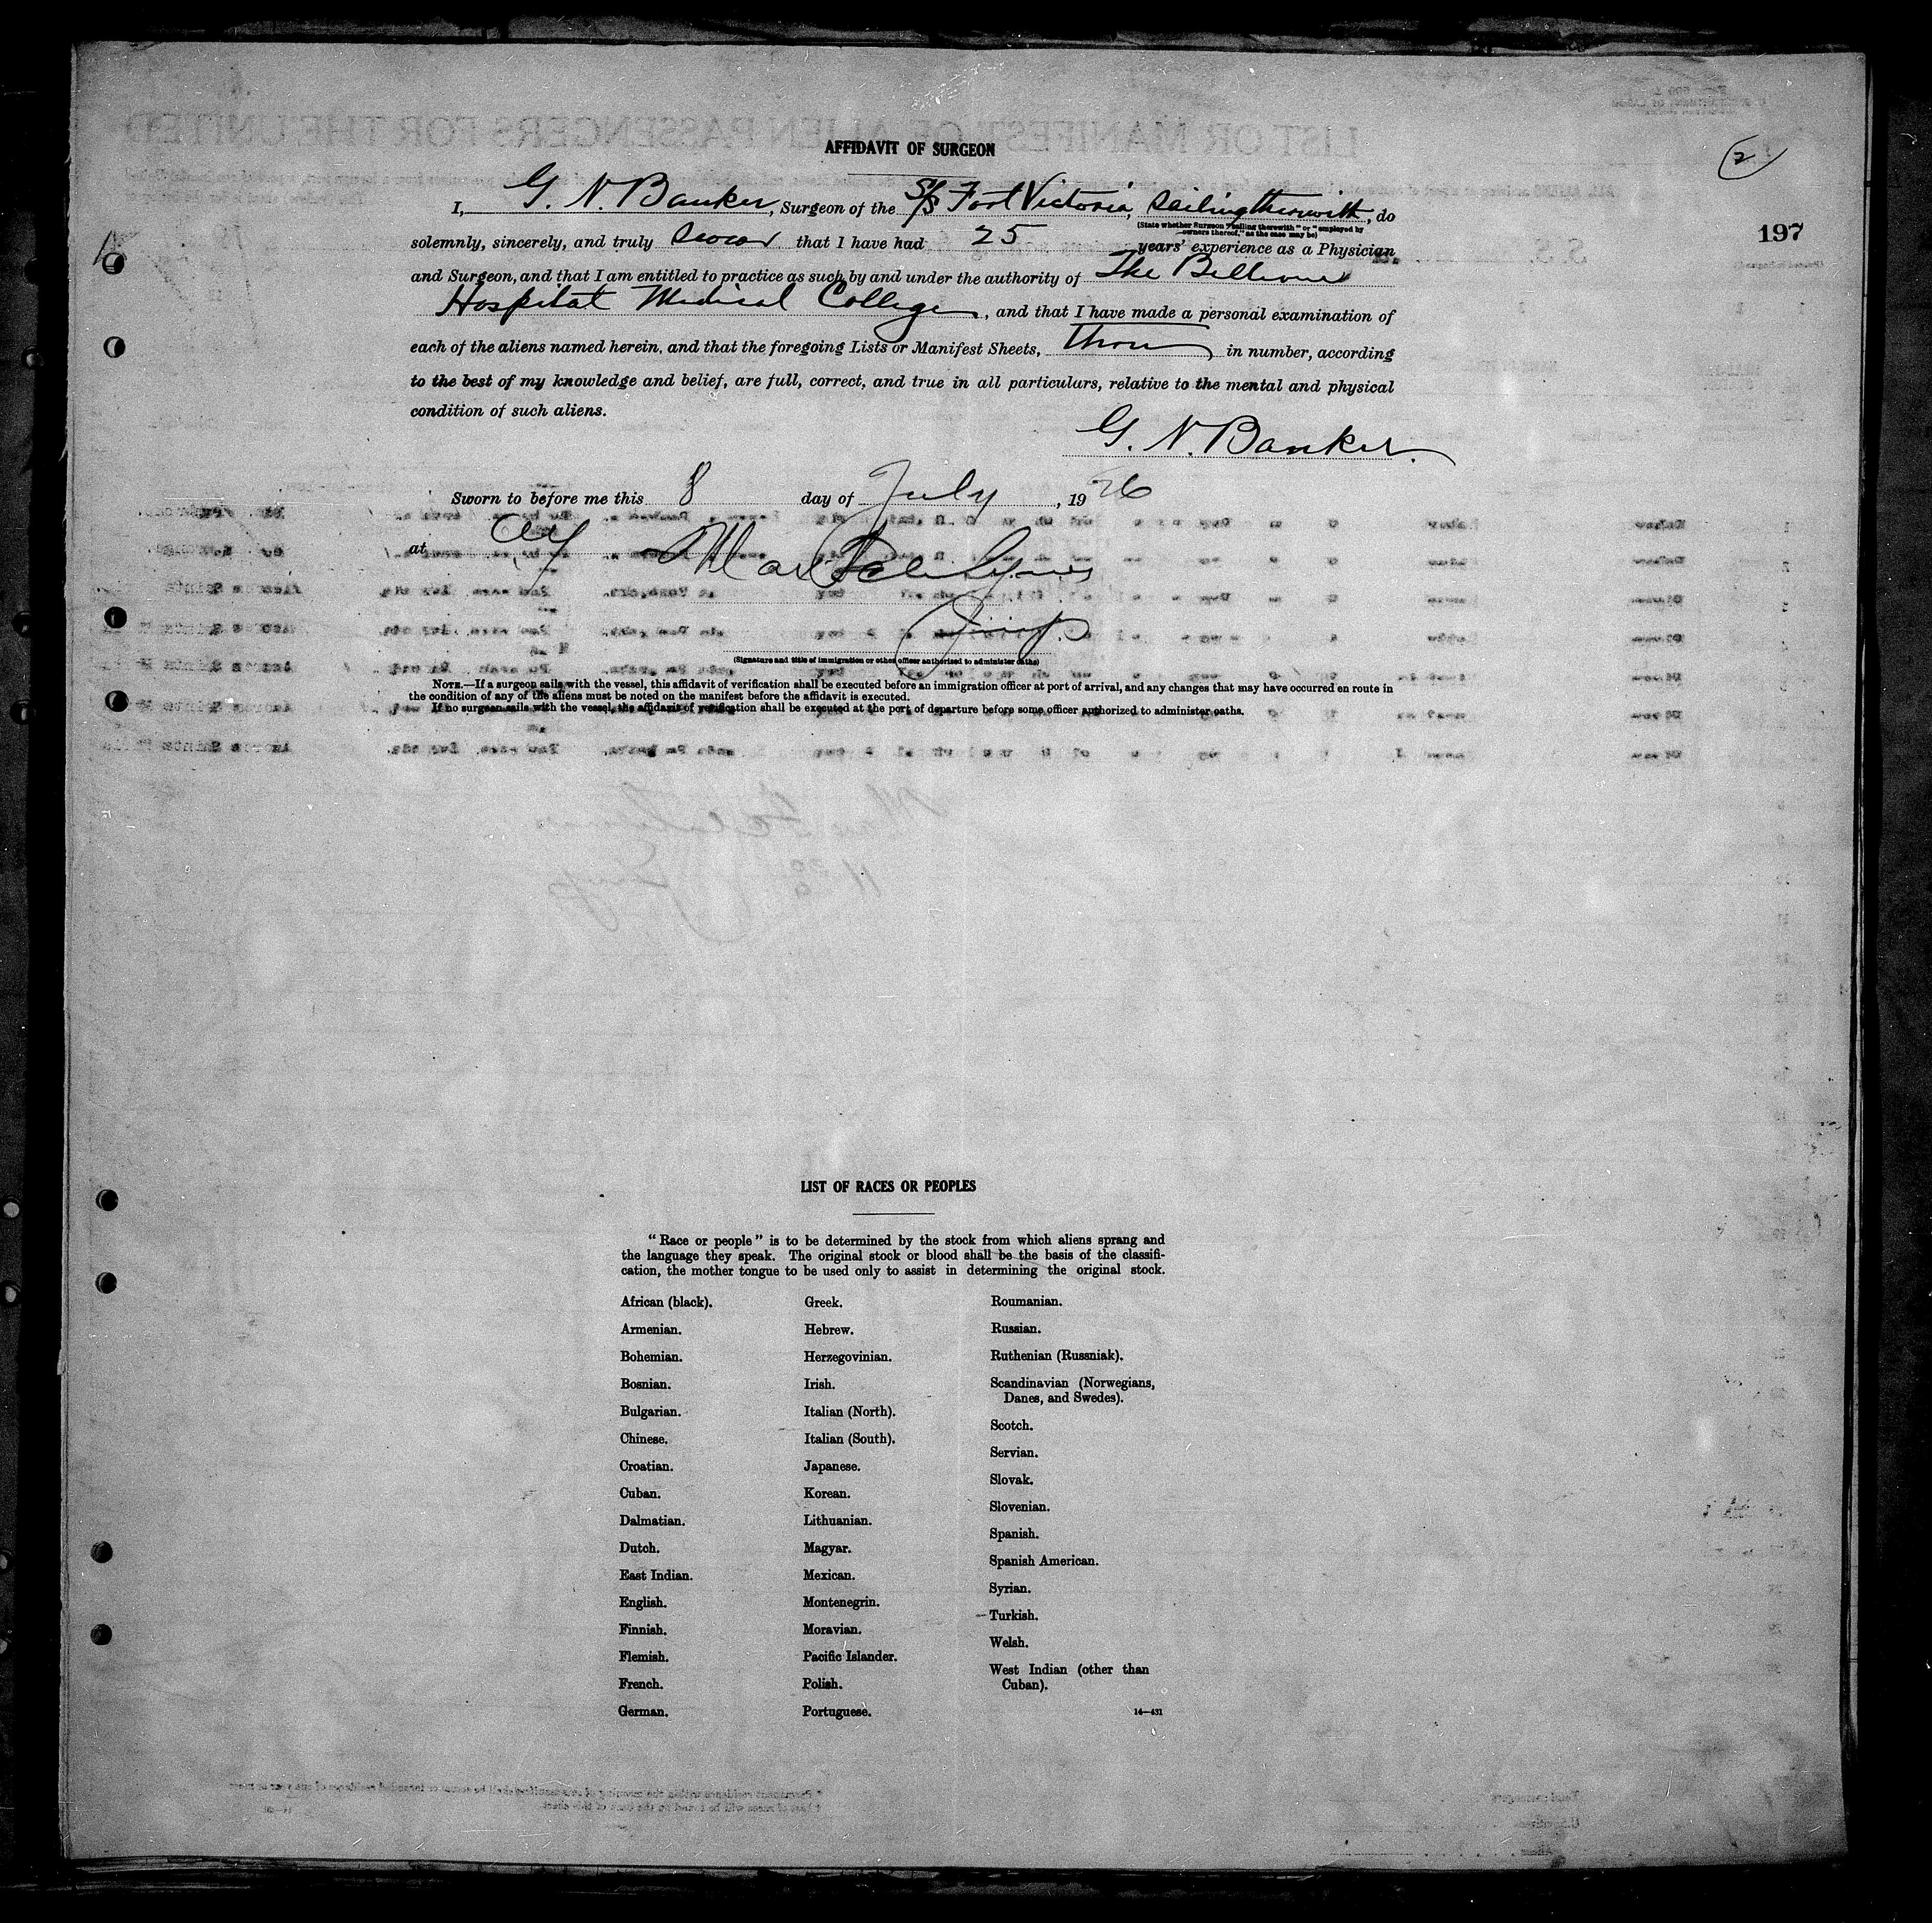 AFFIDAVIT OF SURGEON
2
I, G. N. Banker, Surgeon of the S/S Fort Victoria, sailing therewith, do
(State whether Surgeon "sailing therewith" or "employed by
owners thereof," as the case may be)
197
solemnly, sincerely, and truly swear that I have had 25 years' experience as a Physician
and Surgeon, and that I am entitled to practice as such by and under the authority of The Bellevue
Hospital Medical College, and that I have made a personal examination of
each of the aliens named herein, and that the foregoing Lists or Manifest Sheets, in number, according
to the best of my knowledge and belief, are full, correct, and true in all particulars, relative to the mental and physical
condition of such aliens.
G. N. Banker.
Sworn to before me this 8 day of July, 1926
at
(Signature and title of immigration or other officer authorized to administer oaths)
NOTE.—If a surgeon sails with the vessel, this affidavit of verification shall be executed before an immigration officer at port of arrival, and any changes that may have occurred en route in
the condition of any of the aliens must be noted on the manifest before the affidavit is executed.
If no surgeon sails with the vessel, the affidavit of verification shall be executed at the port of departure before some officer authorized to administer oaths.
LIST OF RACES OR PEOPLES
"Race or people" is to be determined by the stock from which aliens sprang and
the language they speak. The original stock or blood shall be the basis of the classifi-
cation, the mother tongue to be used only to assist in determining the original stock.
African (black).
Armenian.
Bohemian.
Bosnian.
Bulgarian.
Chinese.
Croatian.
Cuban.
Dalmatian.
Dutch.
East Indian.
English.
Finnish.
Flemish.
French.
German.
Greek.
Hebrew.
Herzegovinian.
Irish.
Italian (North).
Italian (South).
Japanese.
Korean.
Lithuanian.
Magyar.
Mexican.
Montenegrin.
Moravian.
Pacific Islander.
Polish.
Portuguese.
Roumanian.
Russian.
Ruthenian (Russniak).
Scandinavian (Norwegians,
Danes, and Swedes).
Scotch.
Servian.
Slovak.
Slovenian.
Spanish.
Spanish American.
Syrian.
Turkish.
Welsh.
West Indian (other than
Cuban).
14—431